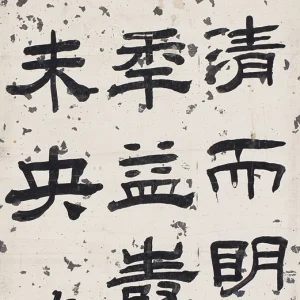 清而明
秊益壽
未央